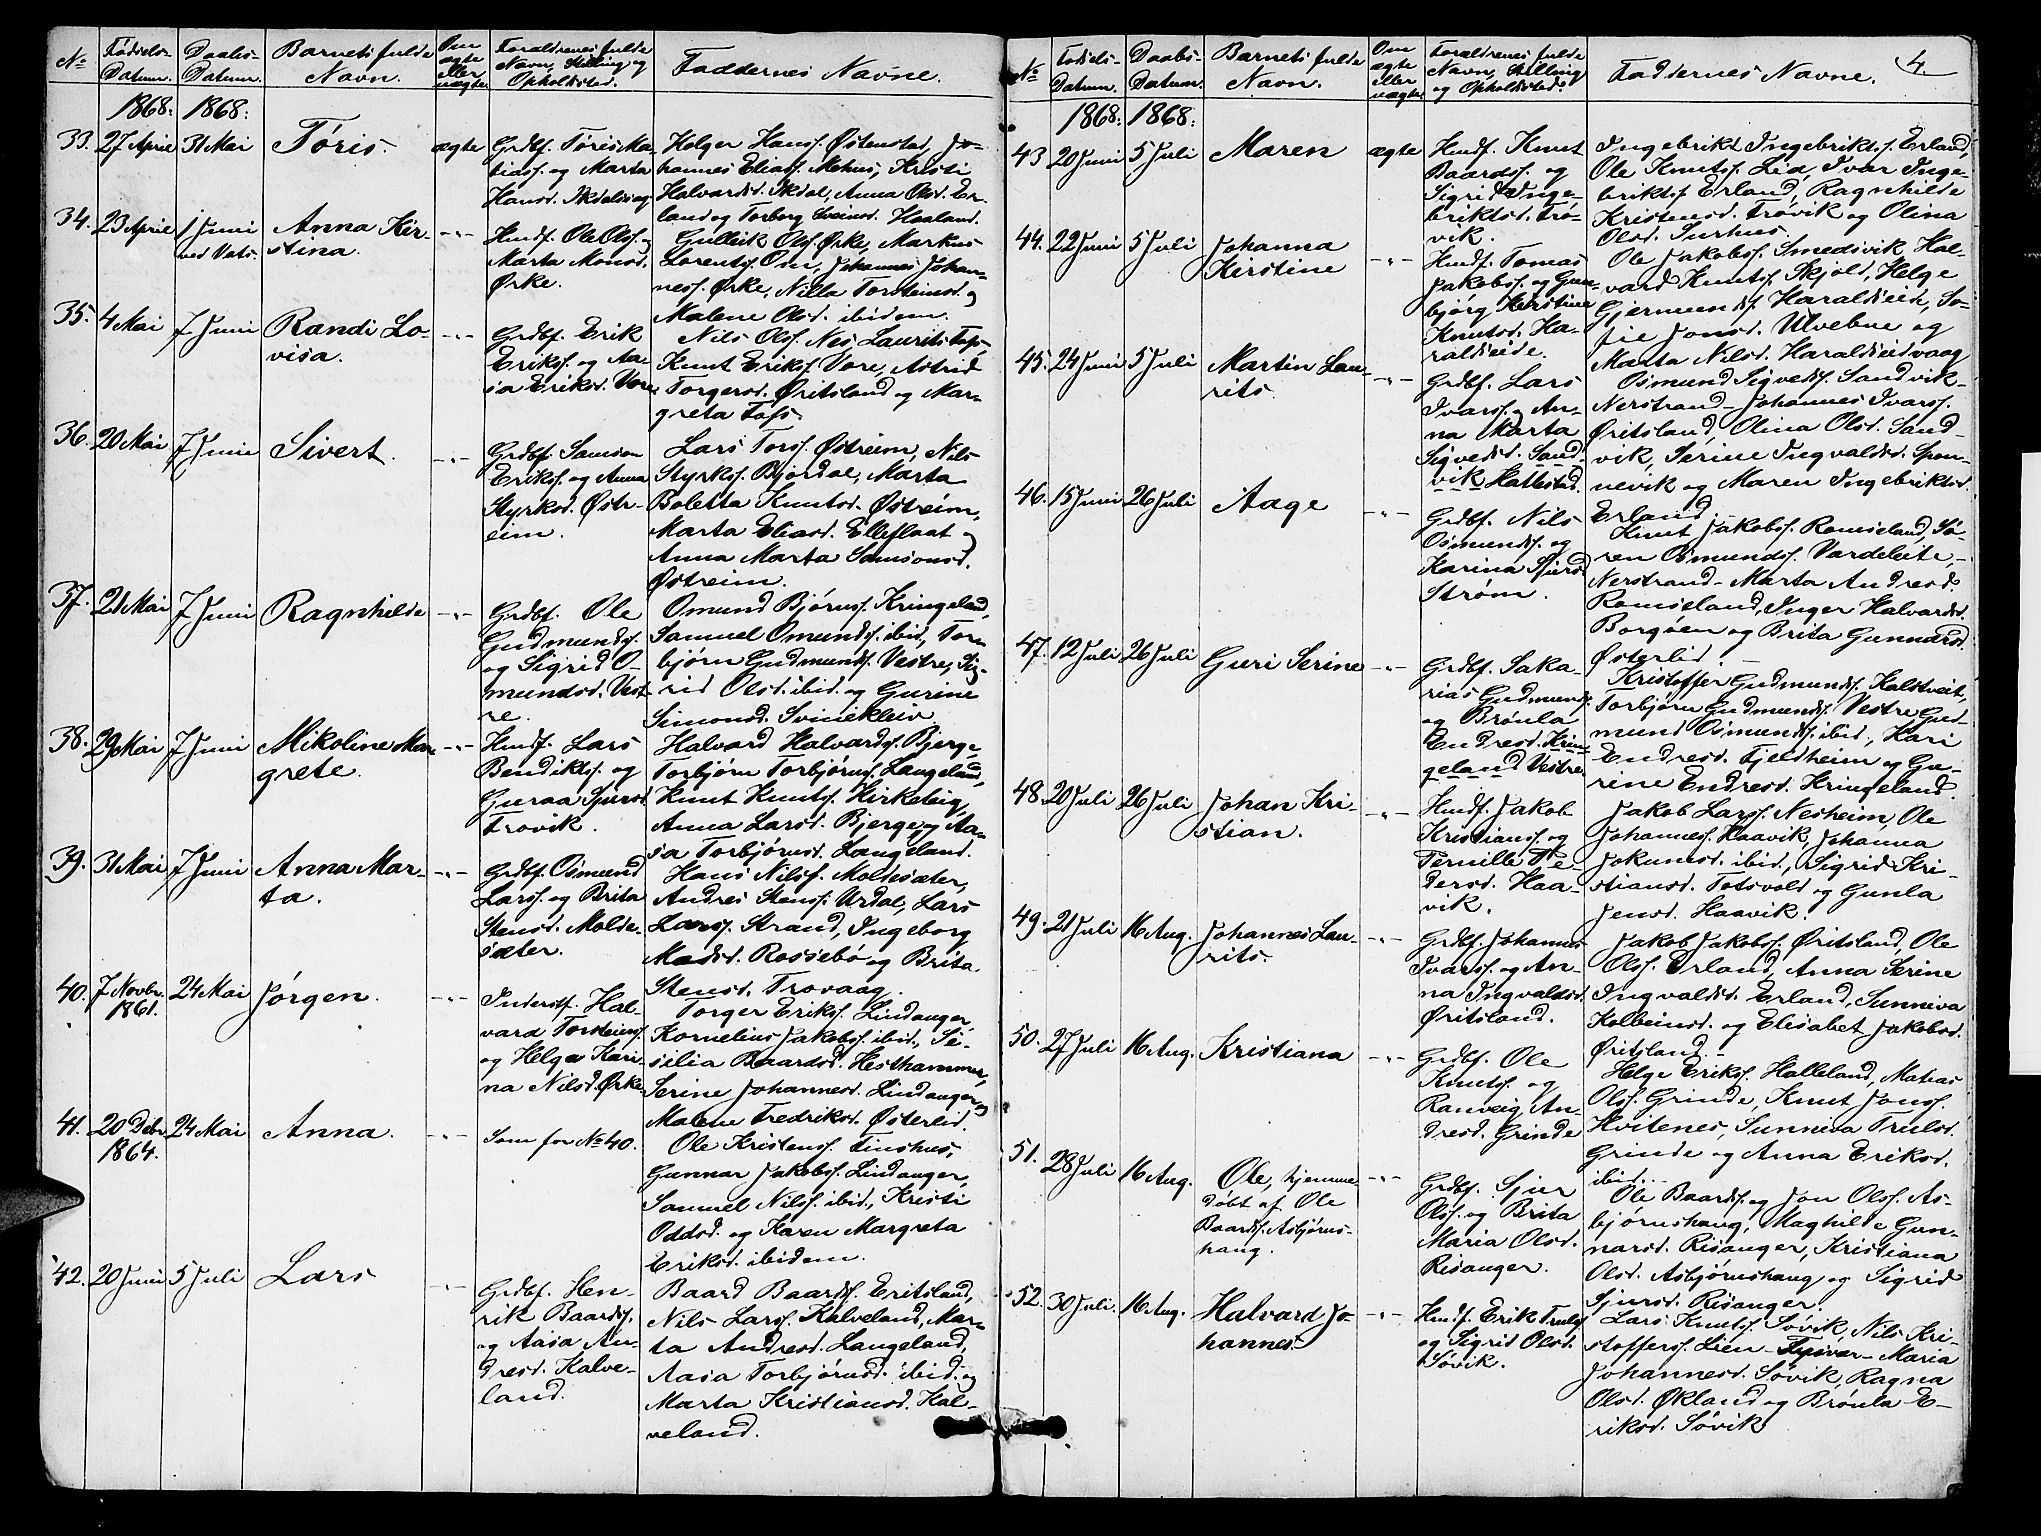 No
Fødsels-
Datum.
Daabs-
Datum.
Barnets fulde
Navn.
Om
ægte
eller
uægte
Foraldrenes fulde
Navn, Stilling og
Opholdssted.
Faddernes Navne.
1868: 1868:
33. 27 April 31 Mai Tøris. ægte
Grdbf. Tøris Ma-
tiass. og Marta
Hansd.
Holger Hanss. Østenstad, Jo-
hannes Eliass. Mehus, Kristi
Halvardsd. Ikdal, Anna Olsd. Er-
land og Torborg Sveinsd. Haaland.
34. 23 April 1 Juni
ved Vats.
Anna Kir-
stina.
-"-
Hmdf. Ole Olss. og
Marta Monsd.
Ørke.
Gulleik Olss. Ørke, Markus
Lorents. Øm, Johannes Johan-
ness. Ørke, Nilla Torsteinsd. og
Malene Olsd. ibidem.
35. 4 Mai 7 Juni Randi Lo-
visa.
-"-
Grdbf. Erik
Erikss. og Aa-
sa Eriksd. Vore
Nils Olss. Nes, Laurits Tofs,
Knut Erikss. Vore, Astrid
Torgersd. Øritsland og Mar-
greta Tofs.
36. 20 Mai 7 Juni Sivert.
-"-
Grdbf. Samson
Erikss. og Anna
Styrksd. Østr-
eim.
Lars Torss. Østreim, Nils
Styrkss. Bjordal, Marta
Boletta Knutsd. Østreim,
Marta Eliasd. Elleflaat og
Anna Marta Samsonsd.
Østreim.
37. 21 Mai 7 Juni Ragnhilde
-"-
Grdbf. Ole
Gudmundss.
og Sigrid O-
mundsd. Vest-
re.
Omund Bjørnss. Kringeland,
Samuel Omundss. ibid., Tor-
bjørn Gudmundss. Vestre, Sig-
rid Olsd. ibid. og Gurine
Simonsd. Svinekleiv.
38. 29 Mai 7 Juni Mikoline Mar-
grete.
-"-
Hmdf. Lars
Bendikss. og
Guraa Sjursd.
Trovik.
Halvard Halvardss. Bjerge,
Torbjørn Torbjørnss. Langeland,
Knut Knutss. Kirkeleig,
Anna Larsd. Bjerge og Aa-
sa Torbjørnsd. Langeland.
39. 31 Mai 7 Juni Anna Mar-
ta.
-"-
Grdbf. Osmund
Larss. og Brita
Stensd. Molde-
sæter.
Hans Nilss. Moldesæter,
Andres Stenss. Urdal, Lars
Larss. Strand, Ingeborg
Madsd. Rossebø og Brita
Stensd. Trovaag.
40. 7 Novbr.
1861.
24 Mai Jørgen.
-"-
Inderstf. Hal-
vard Torsteinss.
og Helga Kari-
na Nilsd. Ørke
Torger Erikss. Lindanger,
Kornelius Jakobss. ibid., Si-
silia Baardsd. Hesthammer,
Serine Johannesd. Lindanger og
Malene Fredriksd. Østerlid.
41. 20 Debr.
1864.
24 Mai Anna.
-"-
Som for No 40.
Ole Kristenss. Tinshus,
Gunnar Jakobss. Lindanger,
Samuel Nilss. ibid., Kristi
Oddsd. og Karen Margreta
Eriksd. ibidem.
42. 20 Juni 5 Juli Lars
-"-
Grdbf. Hen-
rik Baardss.
og Aasa An-
dresd. Kalve-
land.
Baard Baardss. Eritsland,
Nils Larss. Kalveland, Mar-
ta Andresd. Langeland,
Aasa Torbjørnsd. ibid. og
Marta Kristiansd. Kal-
veland.
No
Fødsels-
Datum.
Daabs-
Datum.
Barnets fulde
Navn.
Om
ægte
eller
uægte
Foraldrenes fulde
Navn, Stilling
og Opholdssted.
Faddernes Navne.
4.
1868: 1868:
43 20 Juni 5 Juli Maren ægte
Hmdf. Knut
Baardss. og
Sigrid Inge-
briktsd. Trø-
vik.
Ingebrikt Ingebriktss. Erland,
Ole Knutss. Lid, Ivar Inge-
briktss. Erland, Ragnhilde
Kristensd. Trøvik og Olina
Olsd. Surhus.
44. 22 Juni 5 Juli Johanna
Kirstine
-"-
Hmdf. Tomas
Jakobss. og Gun-
bjørg Kerstine
Knutsd. Ha-
raldseide.
Ole Jakobss. Smedsvik, Hal-
vard Knutss. Skjold, Helge
Gjermundss. Haraldseid, So-
fie Jonsd. Ulvebne og
Marta Nilsd. Haraldseidvaag
45. 24 Juni 5 Juli Martin Lau-
rits.
-"-
Grdbf. Lars
Ivarss. og An-
na Marta
Sigvedsd. Sand-
vik Hattestad.
Osmund Sigvedss. Sandvik-
Nerstrand- Johannes Ivarss.
Øritsland, Olina Olsd. Sand-
vik, Serine Ingvaldsd. Spon-
nevik og Maren Ingebriktsd.
Erland.
46. 15 Juni 26 Juli Aage
-"-
Grdbf. Nils
Osmundss. og
Karina Sjursd
Strøm.
Knut Jakobss. Romseland, Sø-
ren Osmundss. Vardeleite,-
Nerstrand- Marta Andresd.
Romseland, Inger Halvardsd.
Borgøen og Brita Gunnarsd.
Østerlid.
47. 12 Juli 26 Juli Guri Serine
-"-
Grdbf. Saka-
rias Gudmundss.
og Brønla
Endresd. Krin-
geland Vestre.
Kristoffer Gudmundss. Kalstveit,
Torbjørn Gudmundss. Vestre Gud-
mund Osmundss. ibid., Kari
Endresd. Fjeldheim og Gu-
rine Endresd. Kringeland.
48. 20 Juli 26 Juli Johan Kri-
stian.
-"-
Hmdf. Jakob
Kristianss. og
Pernille Pe-
dersd. Haa-
vik.
Jakob Larss. Nesheim, Ole
Johanness. Haavik, Johanna
Jokumsd. ibid., Sigrid Kri-
stiansd. Totsvold og Gunla
Jensd. Haavik.
49. 21 Juli 16 Aug. Johannes Lau-
rits.
-"-
Grdbf. Johannes
Ivarss. og An-
na Ingvaldsd.
Øritsland.
Jakob Jakobss. Øritsland, Ole
Olss. Erland, Anna Serine
Ingvaldsd. Erland, Sunniva
Kolbeinsd. og Elisabet Jakobsd.
Øritsland.
50. 27 Juli 16 Aug. Kristiana
-"-
Grdbf. Ole
Knutss. og
Ranveig An-
dresd. Grinde
Helge Erikss. Halleland, Matias
Olss. Grinde, Knut Jonss.
Hvitenes, Sunniva Trulsd.
Grinde og Anna Eriksd.
ibid.
51. 28 Juli 16 Aug. Ole, hjemme-
døbt af Ole
Baardss. Asbjørns-
haug.
-"-
Grdbf. Sjur
Olss. og Brita
Maria Olsd.
Risanger.
Ole Baardss. og Jon Olss. As-
bjørnshaug, Maghilde Gun-
narsd. Risanger, Kristiana
Olsd. Asbjørnshaug og Sigrid
Sjursd. Risanger.
52. 30 Juli. 16 Aug. Halvard Jo-
hannes.
-"-
Hmdf. Erik Trulss.
og Sigrid Olsd.
Søvik.
Lars Knutss. Søvik, Nils Kri-
stofferss. Lien- Tysvær- Maria
Johannesd. Søvik, Ragna
Olsd. Økland og Brønla E-
riksd. Søvik